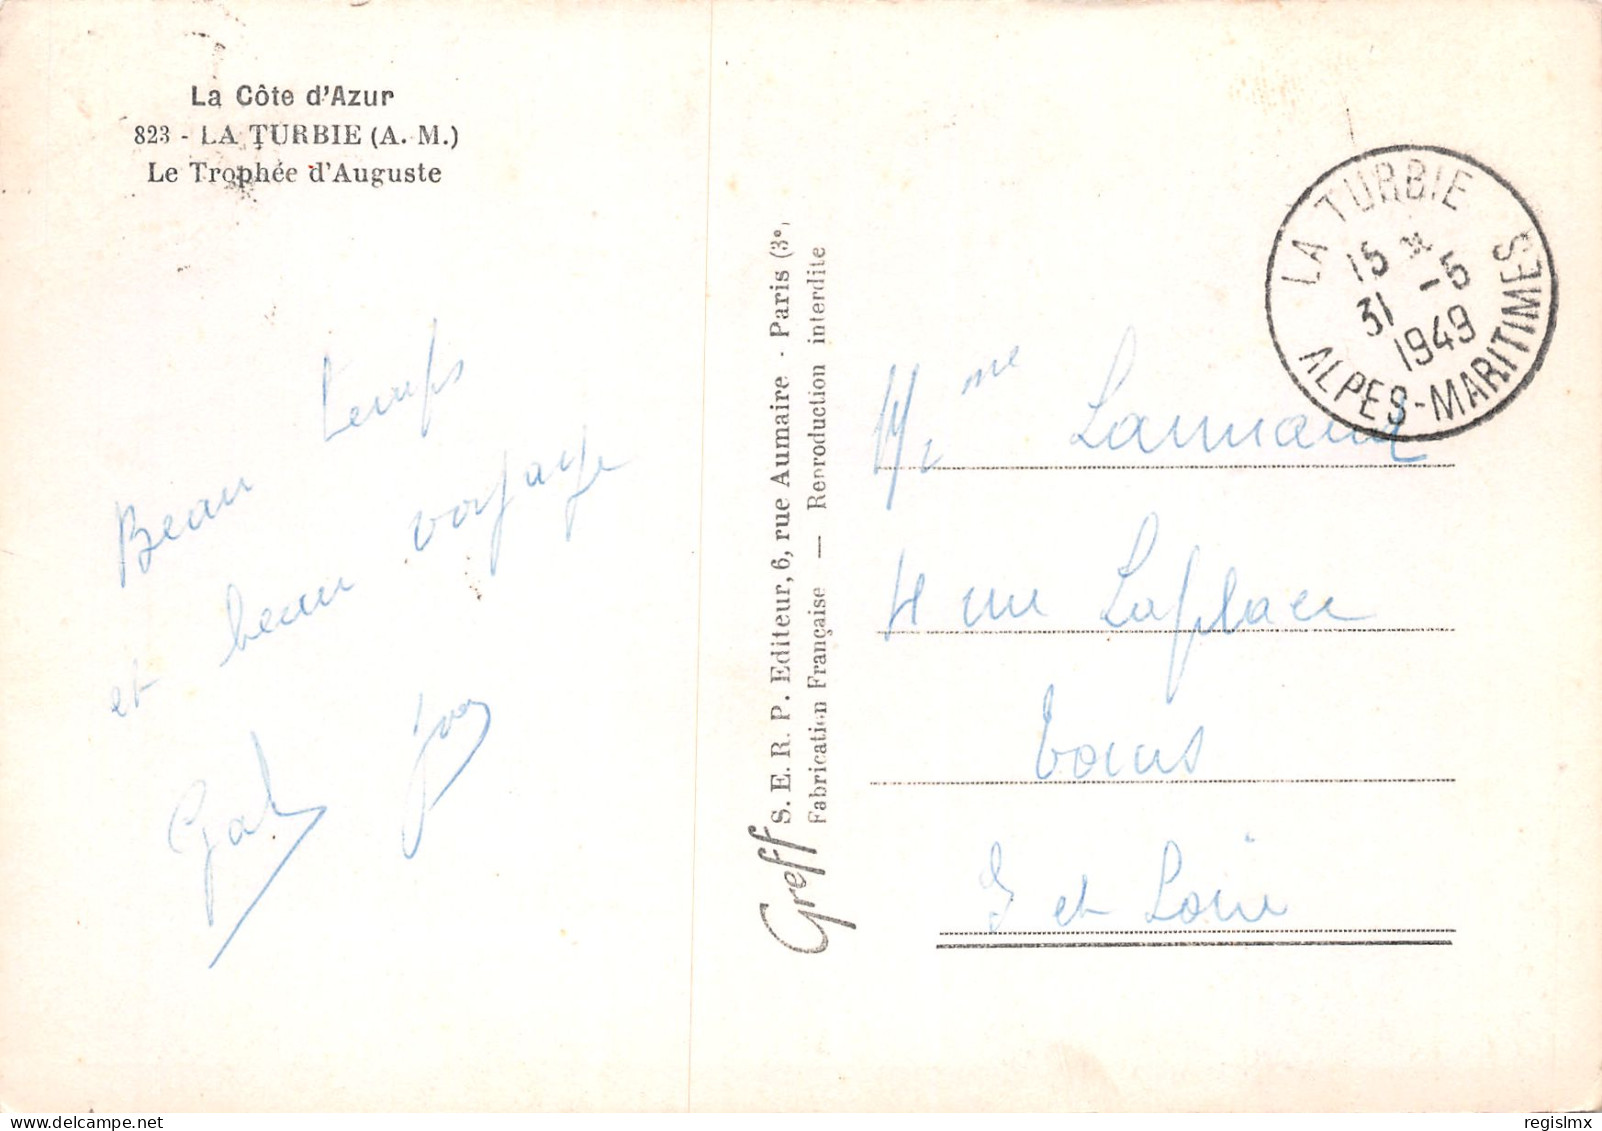 La Côte d'Azur
823 - LA TURBIE (A.-M.)
Le Trophée d'Auguste
Beau temps
et beau voyage
S. E. R. P. Editeur, 6, rue Aumaire - Paris (3°)
Fabrication Française — Reproduction interdite
Greff
LA TURBIE
15 *
31 -5
1949
ALPES-MARITIMES
Mme
4 rue Laplace
Tours
I et Loire
delcampe.net
regislmx